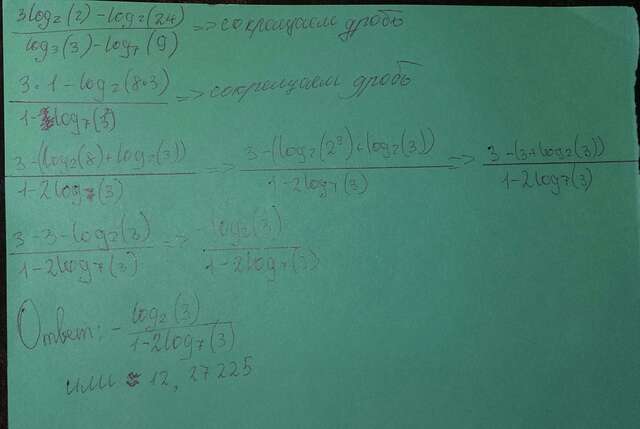 3log₂(2)-log₂(24) / log₃(3)-log₇(9) => сокращаем дробь
3·1-log₂(8·3) / 1-log₇(3²) => сокращаем дробь
3-(log₂(8)+log₂(3)) / 1-2log₇(3) => 3-(log₂(2³)+log₂(3)) / 1-2log₇(3) => 3-(3+log₂(3)) / 1-2log₇(3)
3-3-log₂(3) / 1-2log₇(3) => -log₂(3) / 1-2log₇(3)
Ответ: - log₂(3) / 1-2log₇(3)
или 12,27225